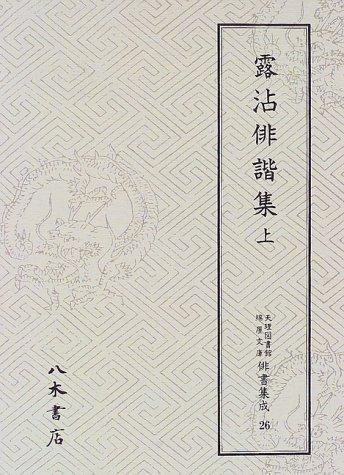 露沾俳諧集 上
天理図書館
綿屋文庫
俳書集成 26
八木書店